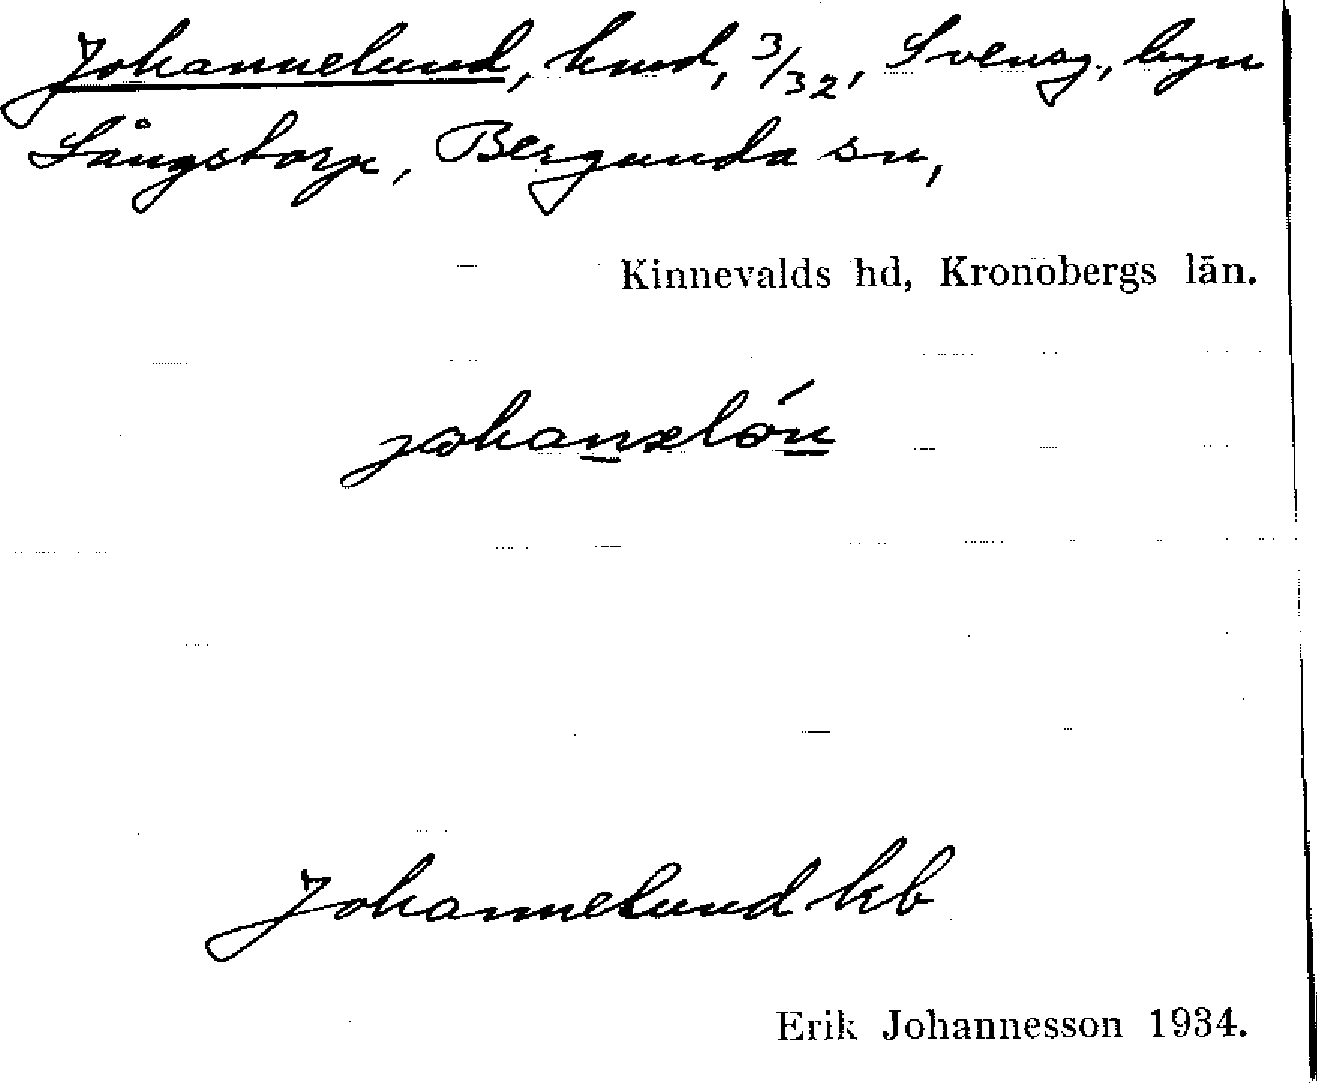 Johannelund, hmd, 3/32, Svensg., byn
Långstorp, Bergunda sn,
Kinnevalds hd, Kronobergs län.
Johannelund kb
Erik Johannesson 1934.